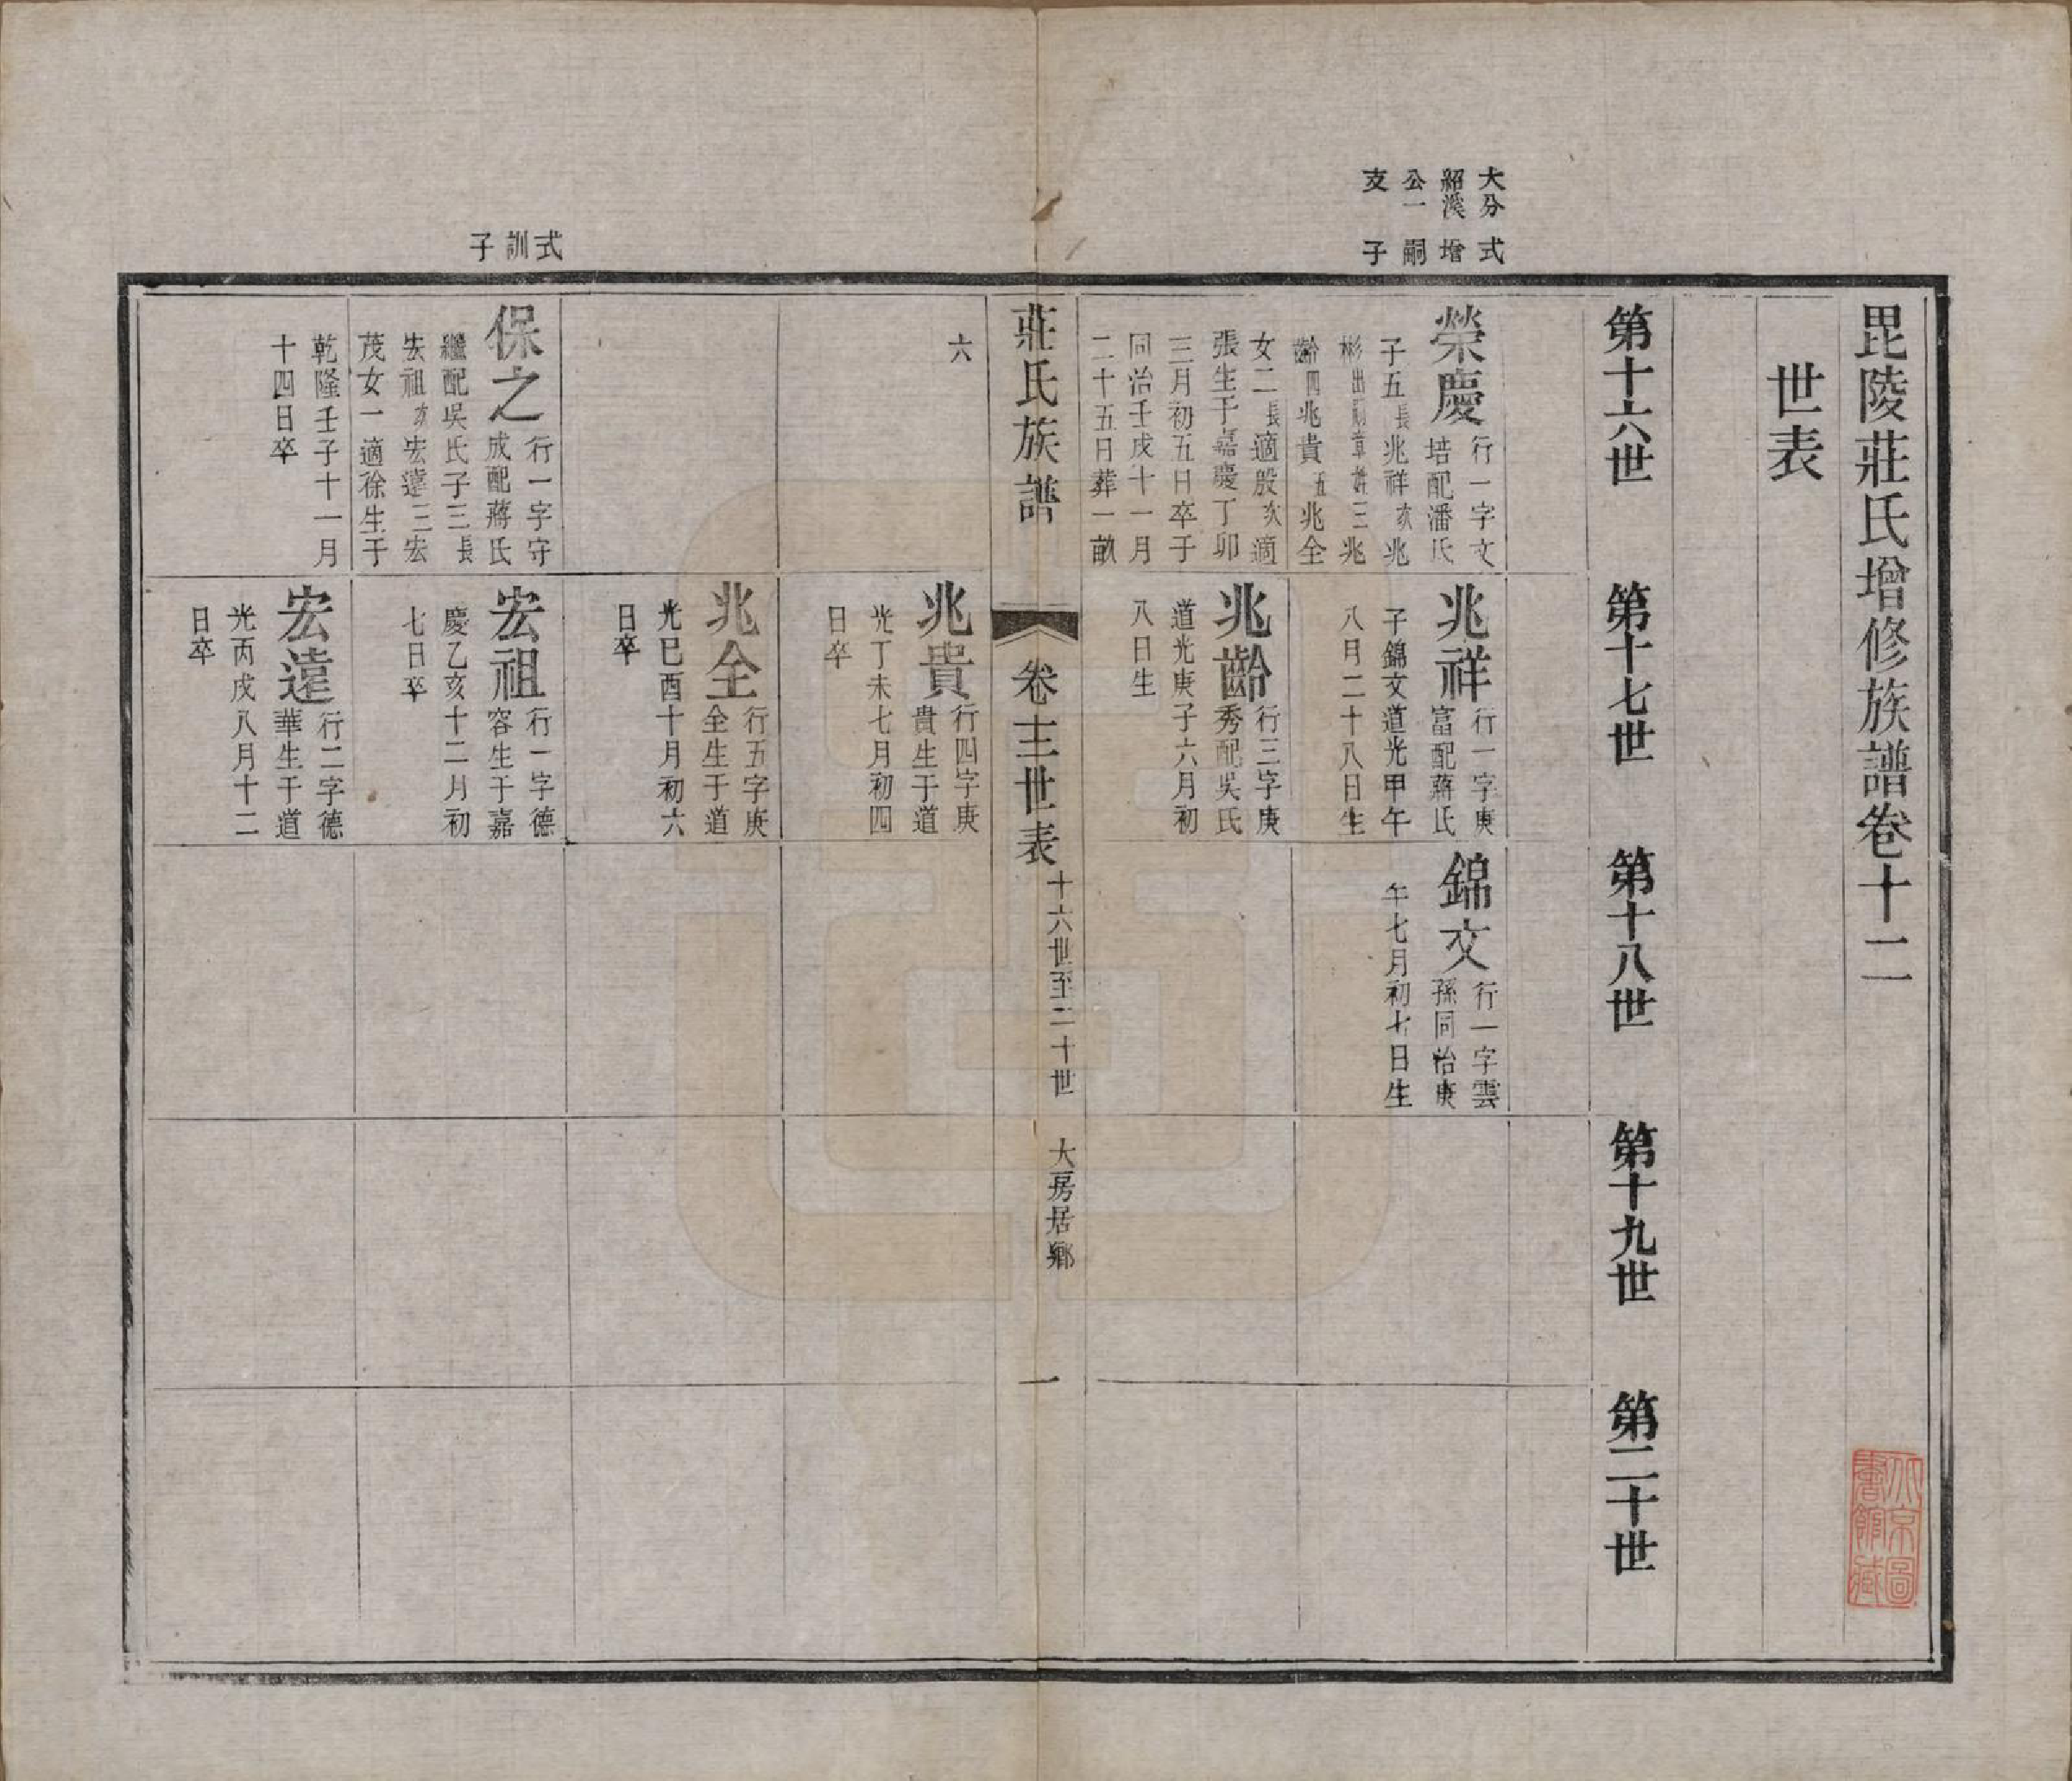 毘陵莊氏增修族譜卷十二
世表
第十六世
第十七世
第十八世
第十九世
第二十世
大分
紹溪
公一
支
式
增
嗣
子
榮慶
行一字文
培配潘氏
子五長兆祥次兆
彬出嗣章 三兆
齡四兆貴五兆全
女二長適殷次適
張生于嘉慶丁卯
三月初五日卒于
同治壬戌十一月
二十五日葬一畝
兆祥
行一字庚
富配蔣氏
子錦文道光甲午
八月二十八日生
錦文
行一字雲
孫同治庚
午七月初七日生
兆齡
行三字庚
秀配吳氏
道光庚子六月初
八日生
莊氏族譜
卷十二世表
十六世至二十世
大房居鄉
一
六
兆貴
行四字庚
貴生于道
光丁未七月初四
日卒
兆全
行五字庚
全生于道
光巳酉十月初六
日卒
式
訓
子
保之
行一字守
成配蔣氏
繼配吳氏子三長
宏祖次宏遠三宏
茂女一適徐生于
乾隆壬子十一月
十四日卒
宏祖
行一字德
容生于嘉
慶乙亥十二月初
七日卒
宏遠
行二字德
華生于道
光丙戌八月十二
日卒
北京圖
書館藏